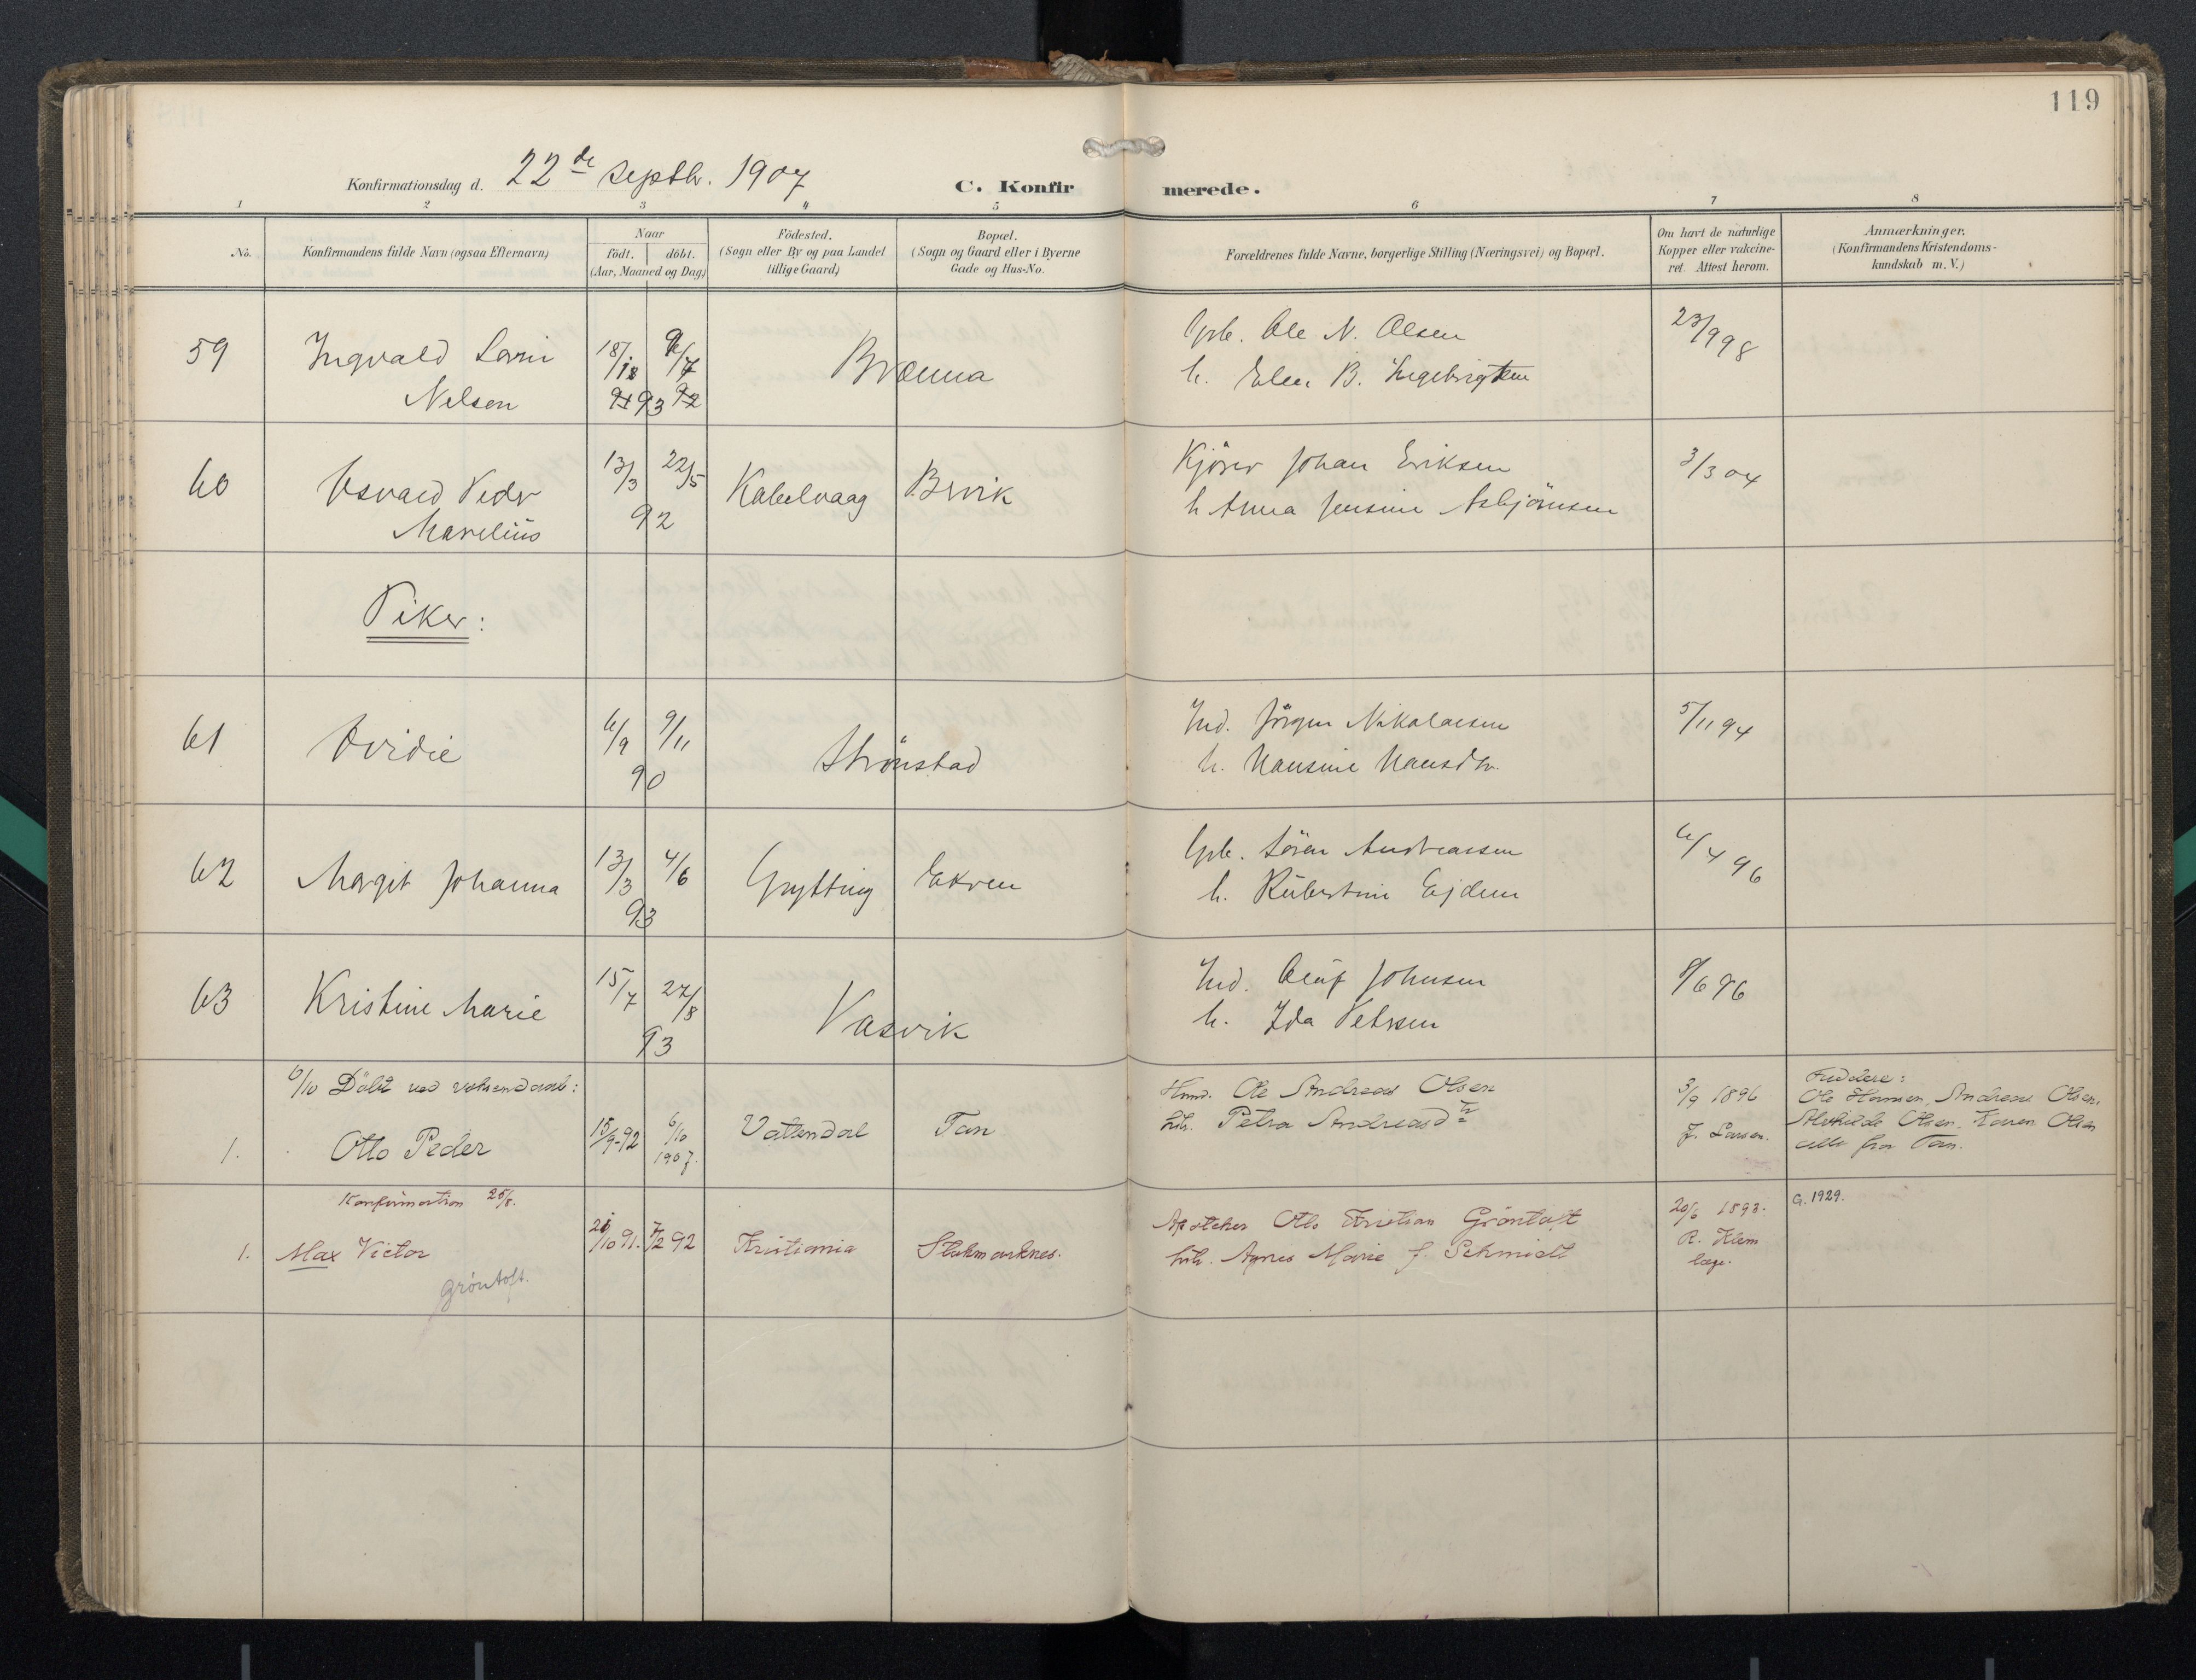 119
Konfirmationsdag d. 22de septbr. 1907
C. Konfirmerede.
1 2 3 4 5 6 7 8
No.
Konfirmandens fulde Navn (ogsaa Efternavn)
Naar
födt. döbt.
(Aar, Maaned og Dag)
Födested.
(Sogn eller By og paa Landet
tillige Gaard)
Bopæl.
(Sogn og Gaard eller i Byerne
Gade og Hus-No.
Forældrenes fulde Navne, borgerlige Stilling (Næringsvei) og Bopæl.
Om havt de naturlige
Kopper eller vakcine-
ret. Attest herom.
Anmærkninger.
(Konfirmandens Kristendoms-
kundskab m. V.)
59 Ingvald
Nelsen
93
Grb. Ole N. Olsen
h. Elen B. Ingebrigtsen
23/9 98
60 Peder
Marelius
13/3 22/5
92
Kabelvaag
Johan Eriksen
h Anna Jensine Asbjörnsen
3/3 04
Piker:
61
6/9 9/11
90
Strönstad
Ind. Jörgen Nikolaisen
h. Hansine Hansdtr.
5/11 94
62 Margit Johanna
13/3 4/6
93
Grytting
Grb. Sören Andreassen
h.
6/4 96
63 Kristine Marie
15/7 27/8
93
Vasvik
Ind. Oluf Johnsen
h. Ida Petersen
8/6 96
6/10 Döbt ved voksendaab:
1. Otto Peder
15/9-92 6/10
1907.
Vottendal
Tan
Ole Andreas Olsen
htr. Petra Andreasdtr
3/9 1896
J. Larsen.
Faddere:
Ole Hansen, Andreas Olsen,
Olsen, Karen Olsen
alle fra Tan.
Konfirmation 25/8.
1. Max Victor
Gröntoft.
21/10 91. 7/2 92
Kristiania
Stokmarknes.
Apotheker Otto Kristian Gröntoft
htr. Agnes Marie f. Schmidt
20/6 1893.
R. Klem
læge.
G. 1929.